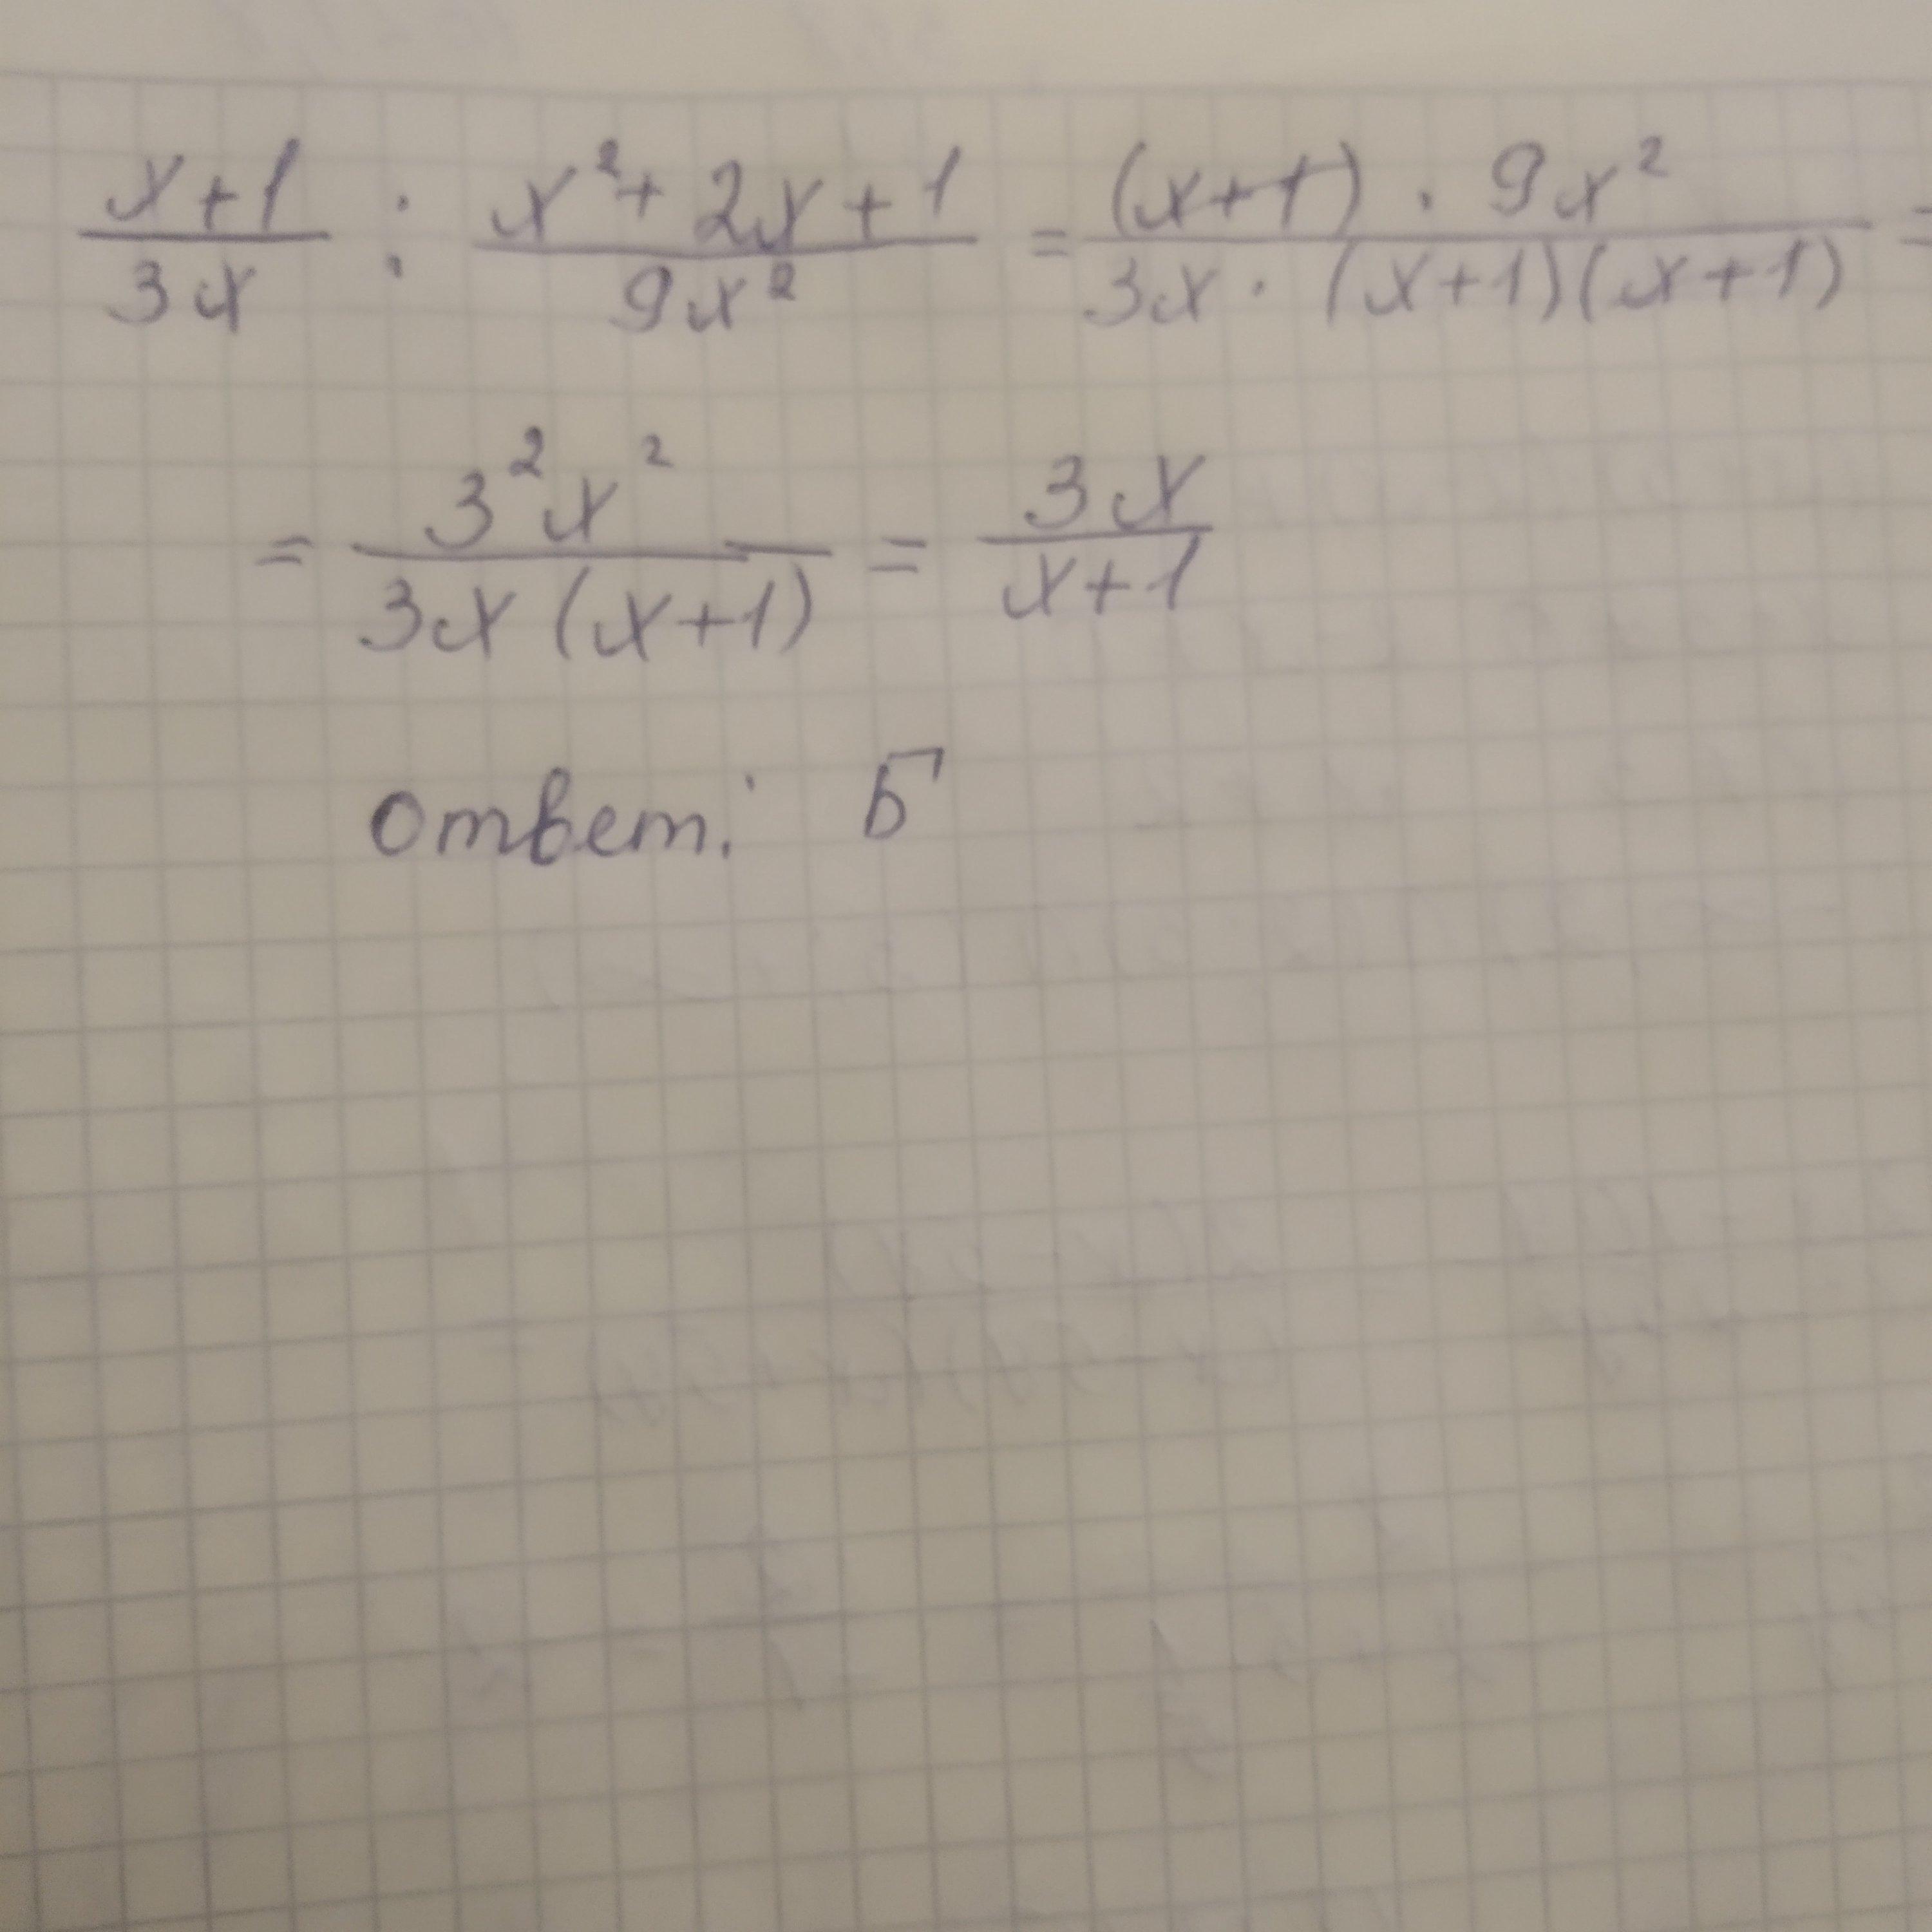 (x+1)/(3x) : (x²+2x+1)/(9x²) = ((x+1)·9x²)/(3x·(x+1)(x+1)) =
= (3²x²)/(3x(x+1)) = (3x)/(x+1)
ответ: Б